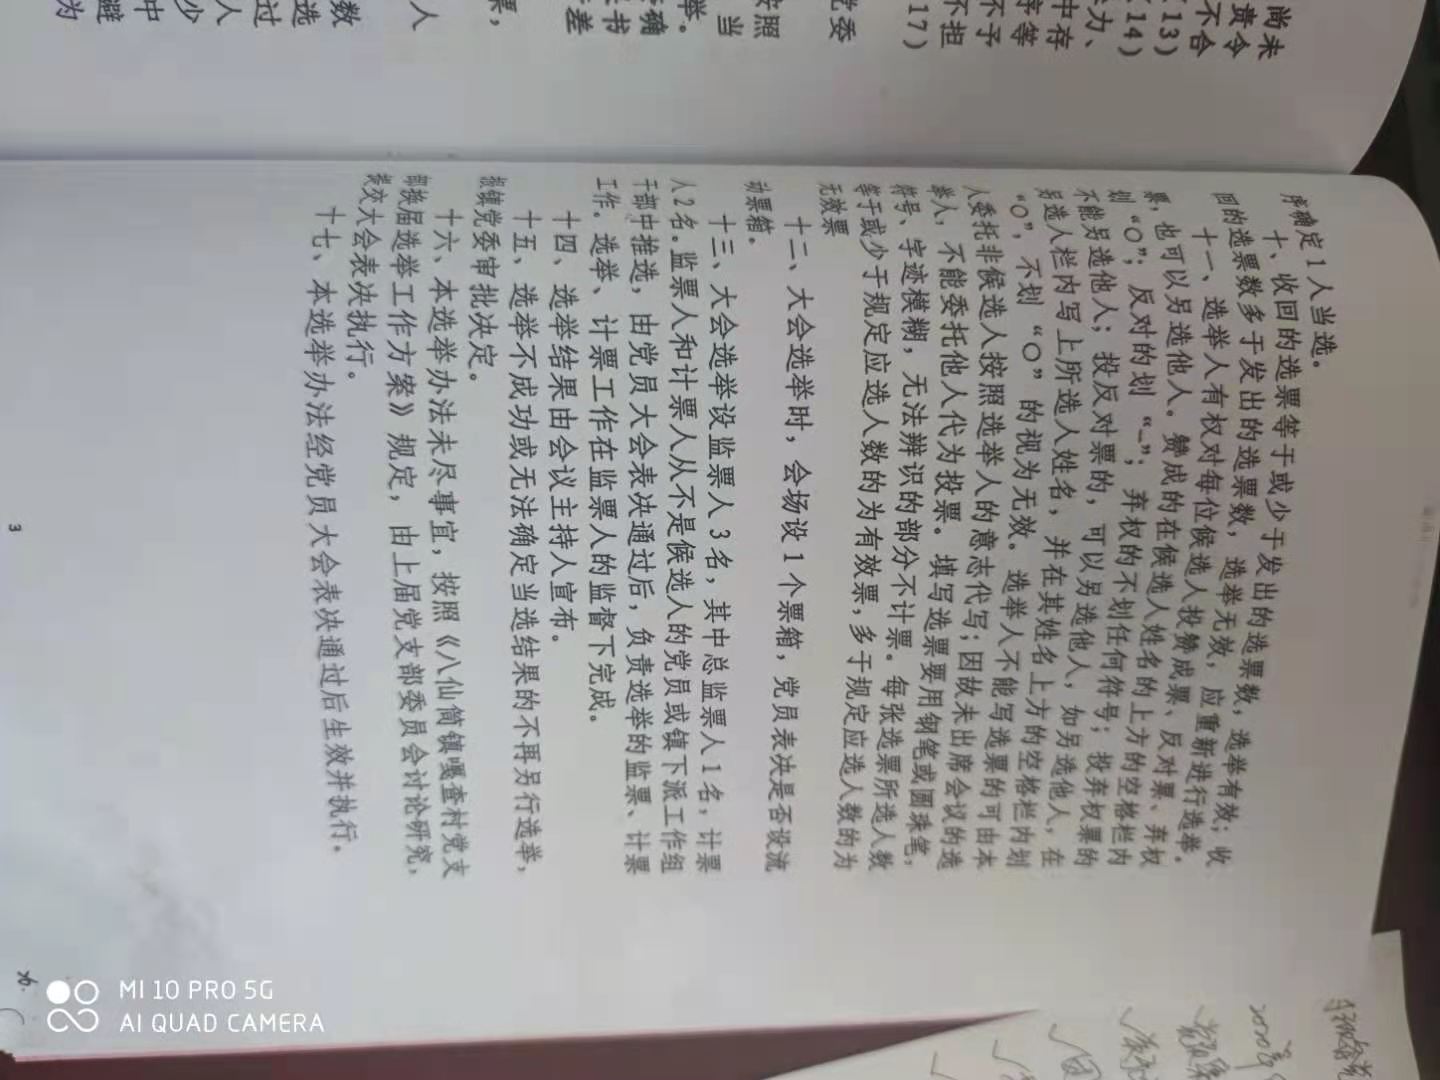 序确定1人当选。
十、收回的选票等于或少于发出的选票数，选举有效；收
回的选票数多于发出的选票数，选举无效，应重新进行选举。
十一、选举人有权对每位候选人投赞成票、反对票、弃权
票，也可以另选他人。赞成的在候选人姓名的上方的空格栏内
划“○”；反对的划“-”；弃权的不划任何符号；投弃权票的
不能另选他人；投反对票的，可以另选他人，如另选他人，在
另选人栏内写上所选人姓名，并在其姓名上方的空格栏内划
“○”，不划“○”的视为无效。选举人不能写选票的可由本
人委托非候选人按照选举人的意志代写；因故未出席会议的选
举人，不能委托他人代为投票。填写选票要用钢笔或圆珠笔，
符号、字迹模糊，无法辨识的部分不计票。每张选票所选人数
等于或少于规定应选人数的为有效票，多于规定应选人数的为
无效票
十二、大会选举时，会场设1个票箱，党员表决是否设流
动票箱。
十三、大会选举设监票人3名，其中总监票人1名，计票
人2名。监票人和计票人从不是候选人的党员或镇下派工作组
干部中推选，由党员大会表决通过后，负责选举的监票、计票
工作。选举、计票工作在监票人的监督下完成。
十四、选举结果由会议主持人宣布。
十五、选举不成功或无法确定当选结果的不再另行选举，
报镇党委审批决定。
十六、本选举办法未尽事宜，按照《八仙筒镇嘎查村党支
部换届选举工作方案》规定，由上届党支部委员会讨论研究，
提交大会表决执行。
十七、本选举办法经党员大会表决通过后生效并执行。
3
尚未
责令
不合
(13)
力、
(14)
中存
序等
不予
不担
17)
党委
按照
当
举。
确
书
差
票，
人
数
选
过
人
少
中
避
为
MI 10 PRO 5G
AI QUAD CAMERA